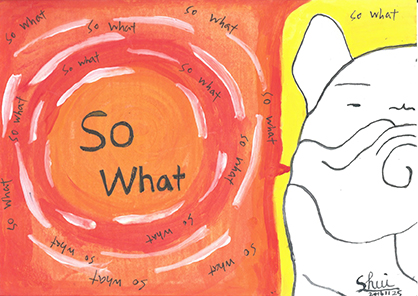 So What
so what
so what
so what
so what
so what
so what
so what
So
What
so what
so what
so what
so what
so what
so what
so what
Shui
2016.11.25